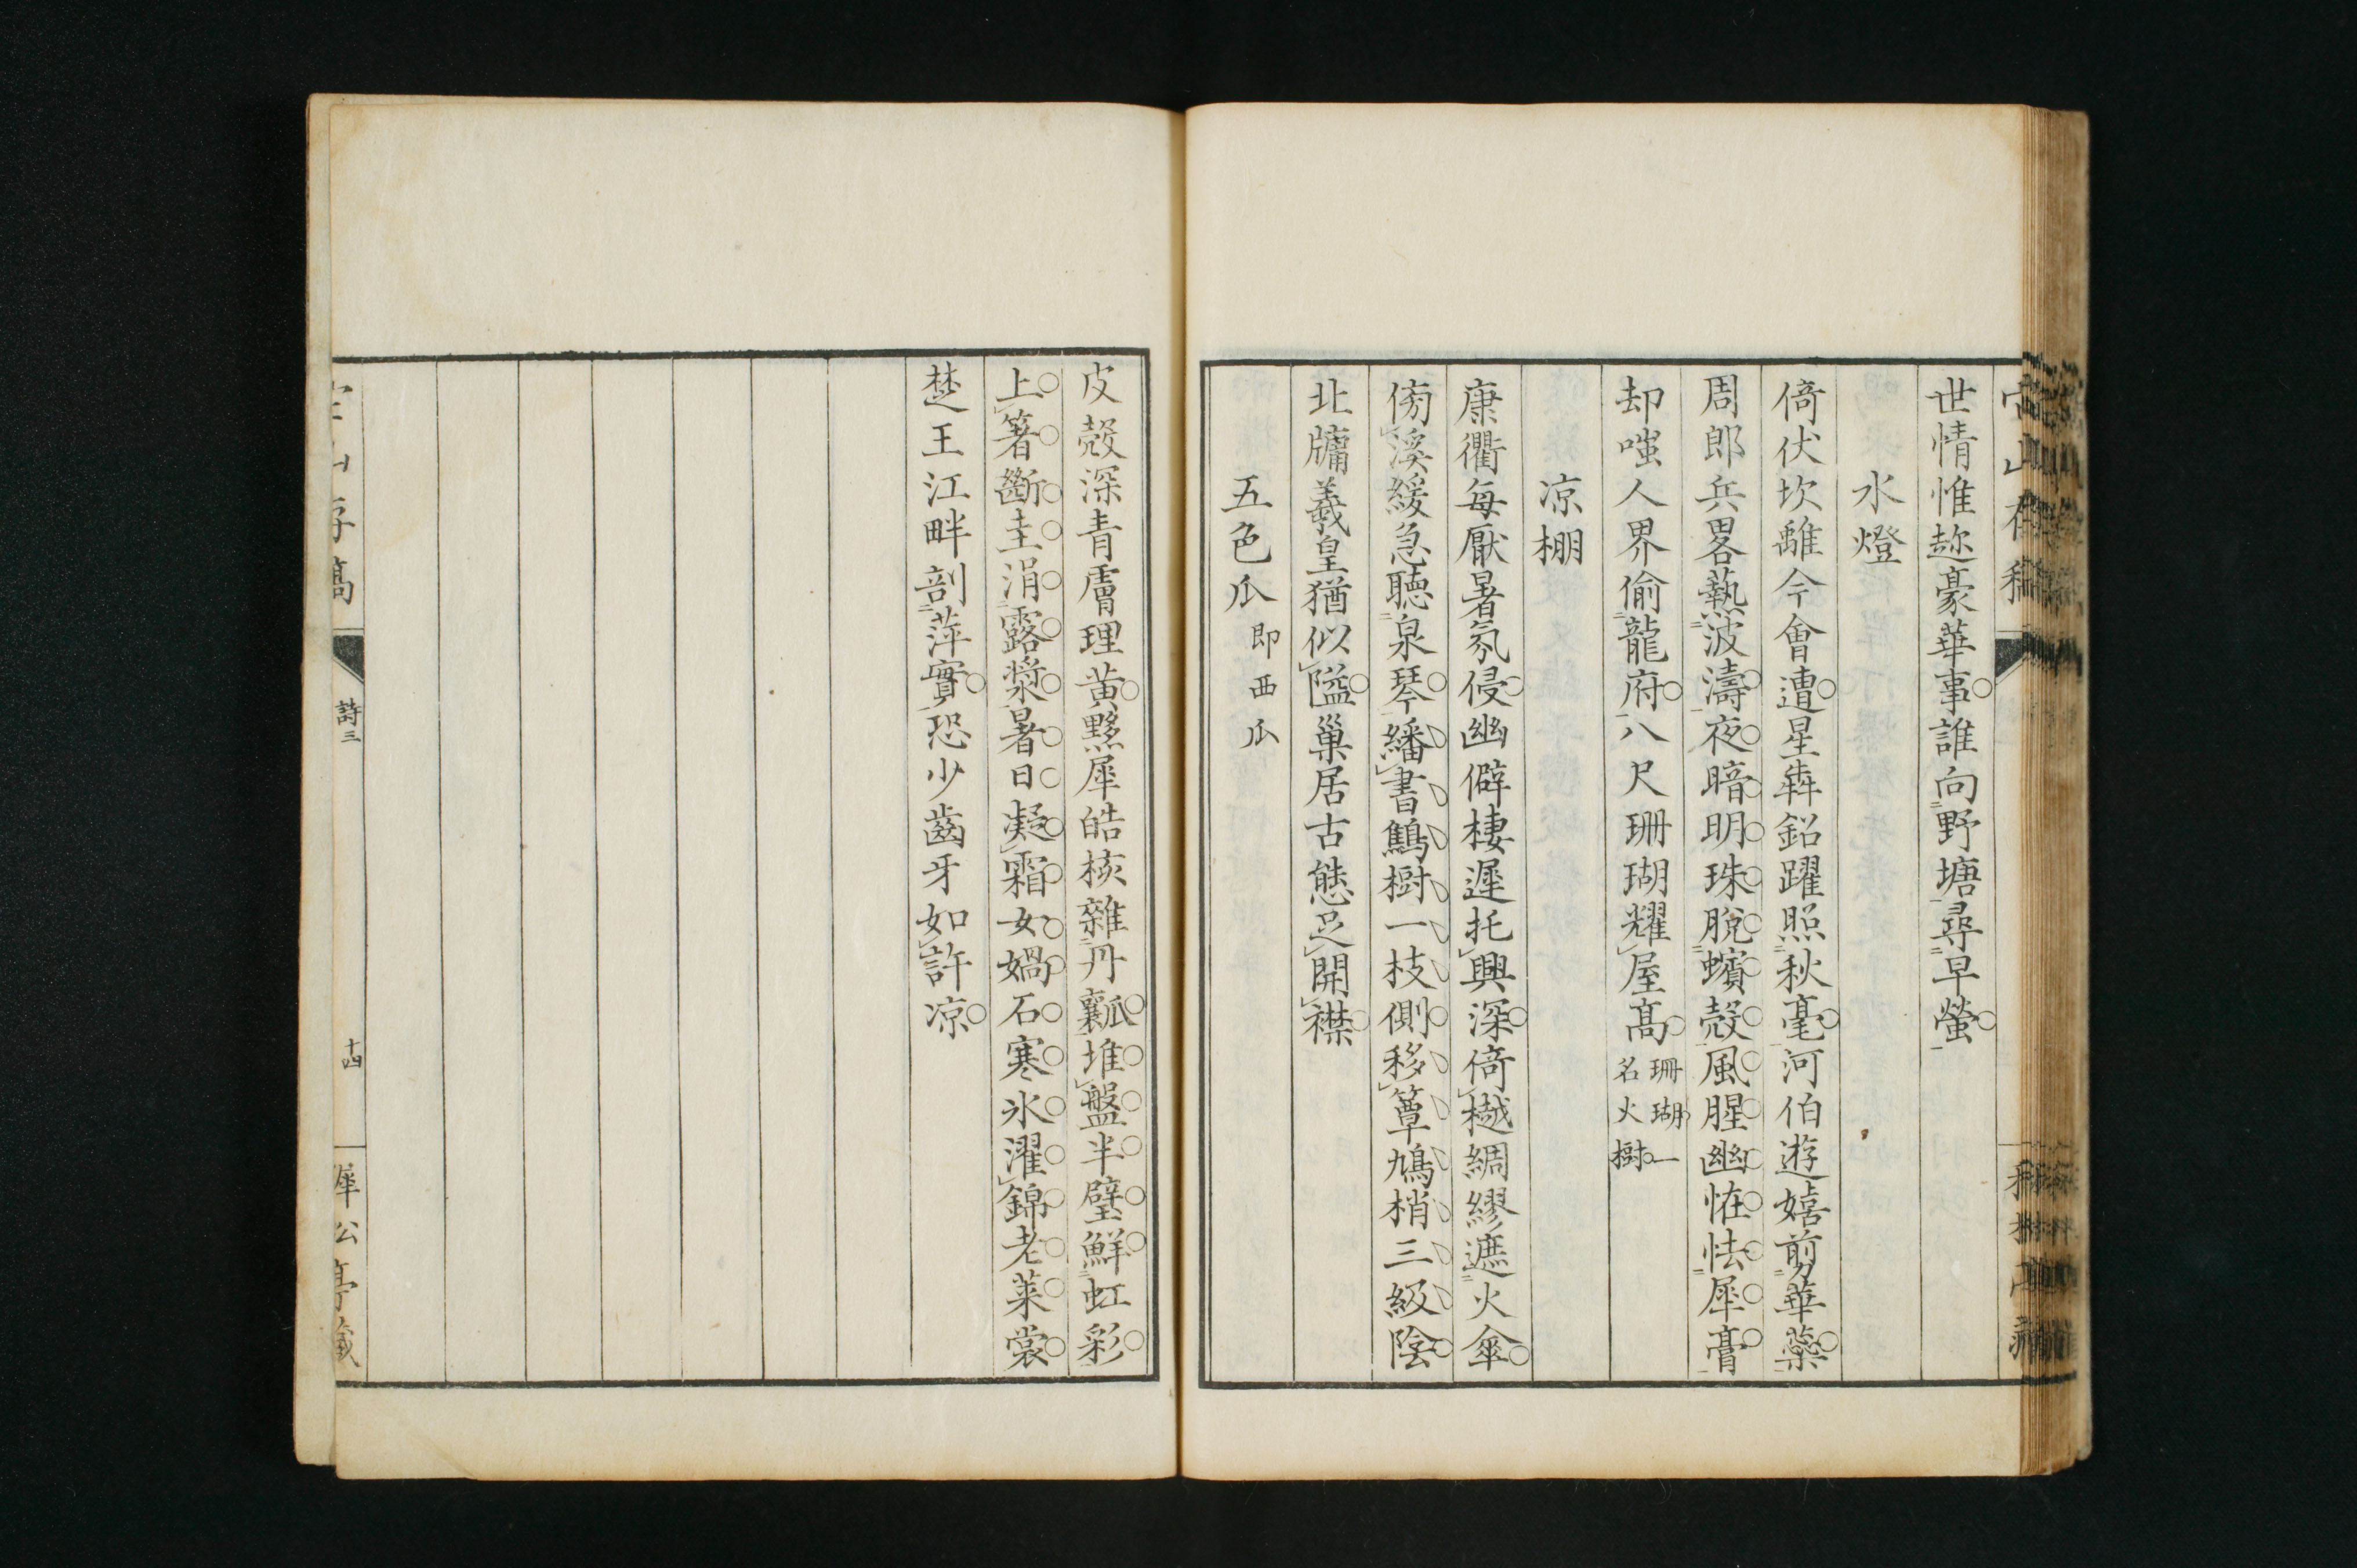 世情惟趂豪華事誰向野塘尋早螢
水燈
倚伏坎離今會遭星犇鉊躍照秋毫河伯遊嬉剪華藥
周郎兵畧熱波濤夜暗明珠脫蠙殼風腥幽恠怯犀膏
却嗤人界偷龍府八尺珊瑚耀屋髙珊瑚一名火樹
凉棚
康衢每厭暑氛侵幽僻棲遲托興深倚樾綢繆遮火傘
傍溪緩急聽泉琴繙書鷦樹一枝側移簟鳩梢三級陰
北牗羲皇猶似隘巢居古態足開襟
五色瓜即西瓜
皮殼深青膚理黄黟犀皓核雜丹瓤堆盤半璧鮮虹彩
上箸斷圭涓露漿暑日凝霜女媧石寒氷濯錦老萊裳
楚王江畔剖萍實恐少齒牙如許凉
詩三
十四